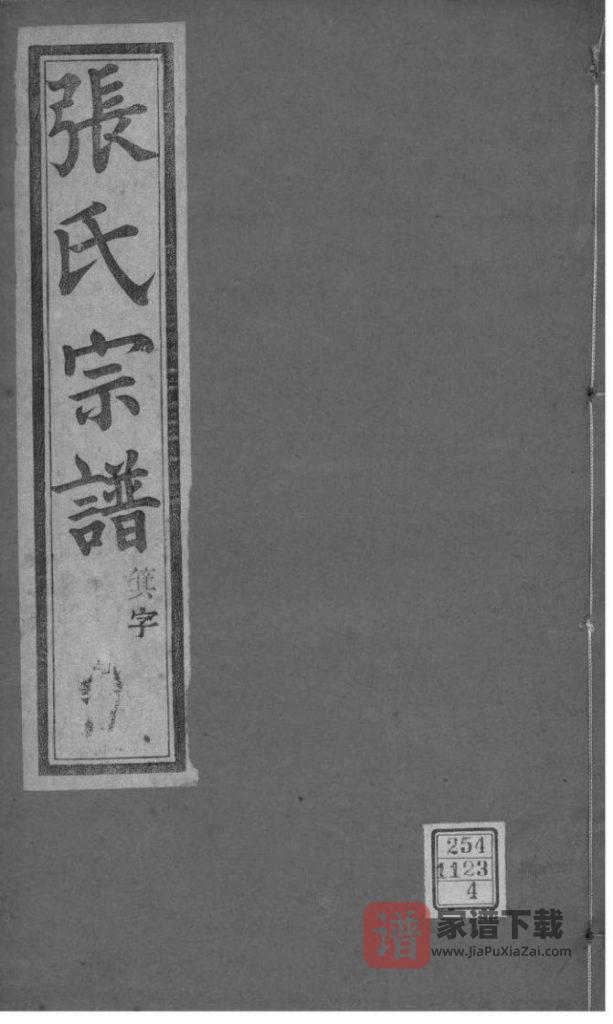 張氏宗譜
箕字
254
1123
4
谱
家谱下载
www.JiaPuXiaZai.com